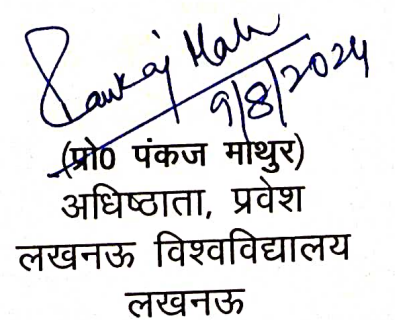 Pankaj Math
9/8/2024
(प्रो0 पंकज माथुर)
अधिष्ठाता, प्रवेश
लखनऊ विश्वविद्यालय
लखनऊ